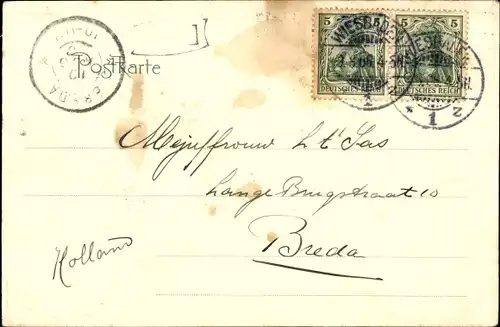 5 5 5 5
DEUTSCHES REICH DEUTSCHES REICH
WIESBADEN
1 z
BREDA
Postkarte
Mejuffrouw
Lange Brugstraat 10
Breda
Holland